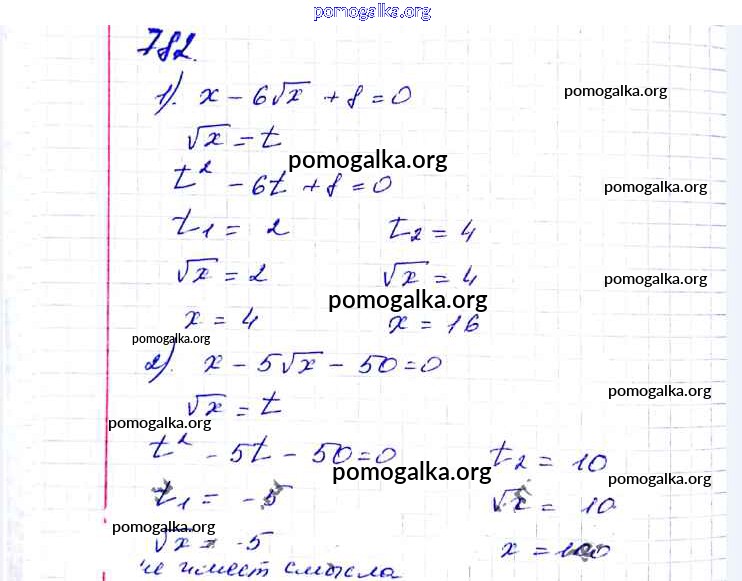 pomogalka.org
782.
1). x - 6√x + 8 = 0
pomogalka.org
√x = t
pomogalka.org
t² - 6t + 8 = 0
pomogalka.org
t₁ = 2 t₂ = 4
√x = 2 √x = 4
pomogalka.org
pomogalka.org
x = 4 x = 16
pomogalka.org
2). x - 5√x - 50 = 0
pomogalka.org
√x = t
pomogalka.org
t² - 5t - 50 = 0 t₂ = 10
pomogalka.org
pomogalka.org
t₁ = -5 √x = 10
pomogalka.org
√x = -5 x = 100
не имеет смысла